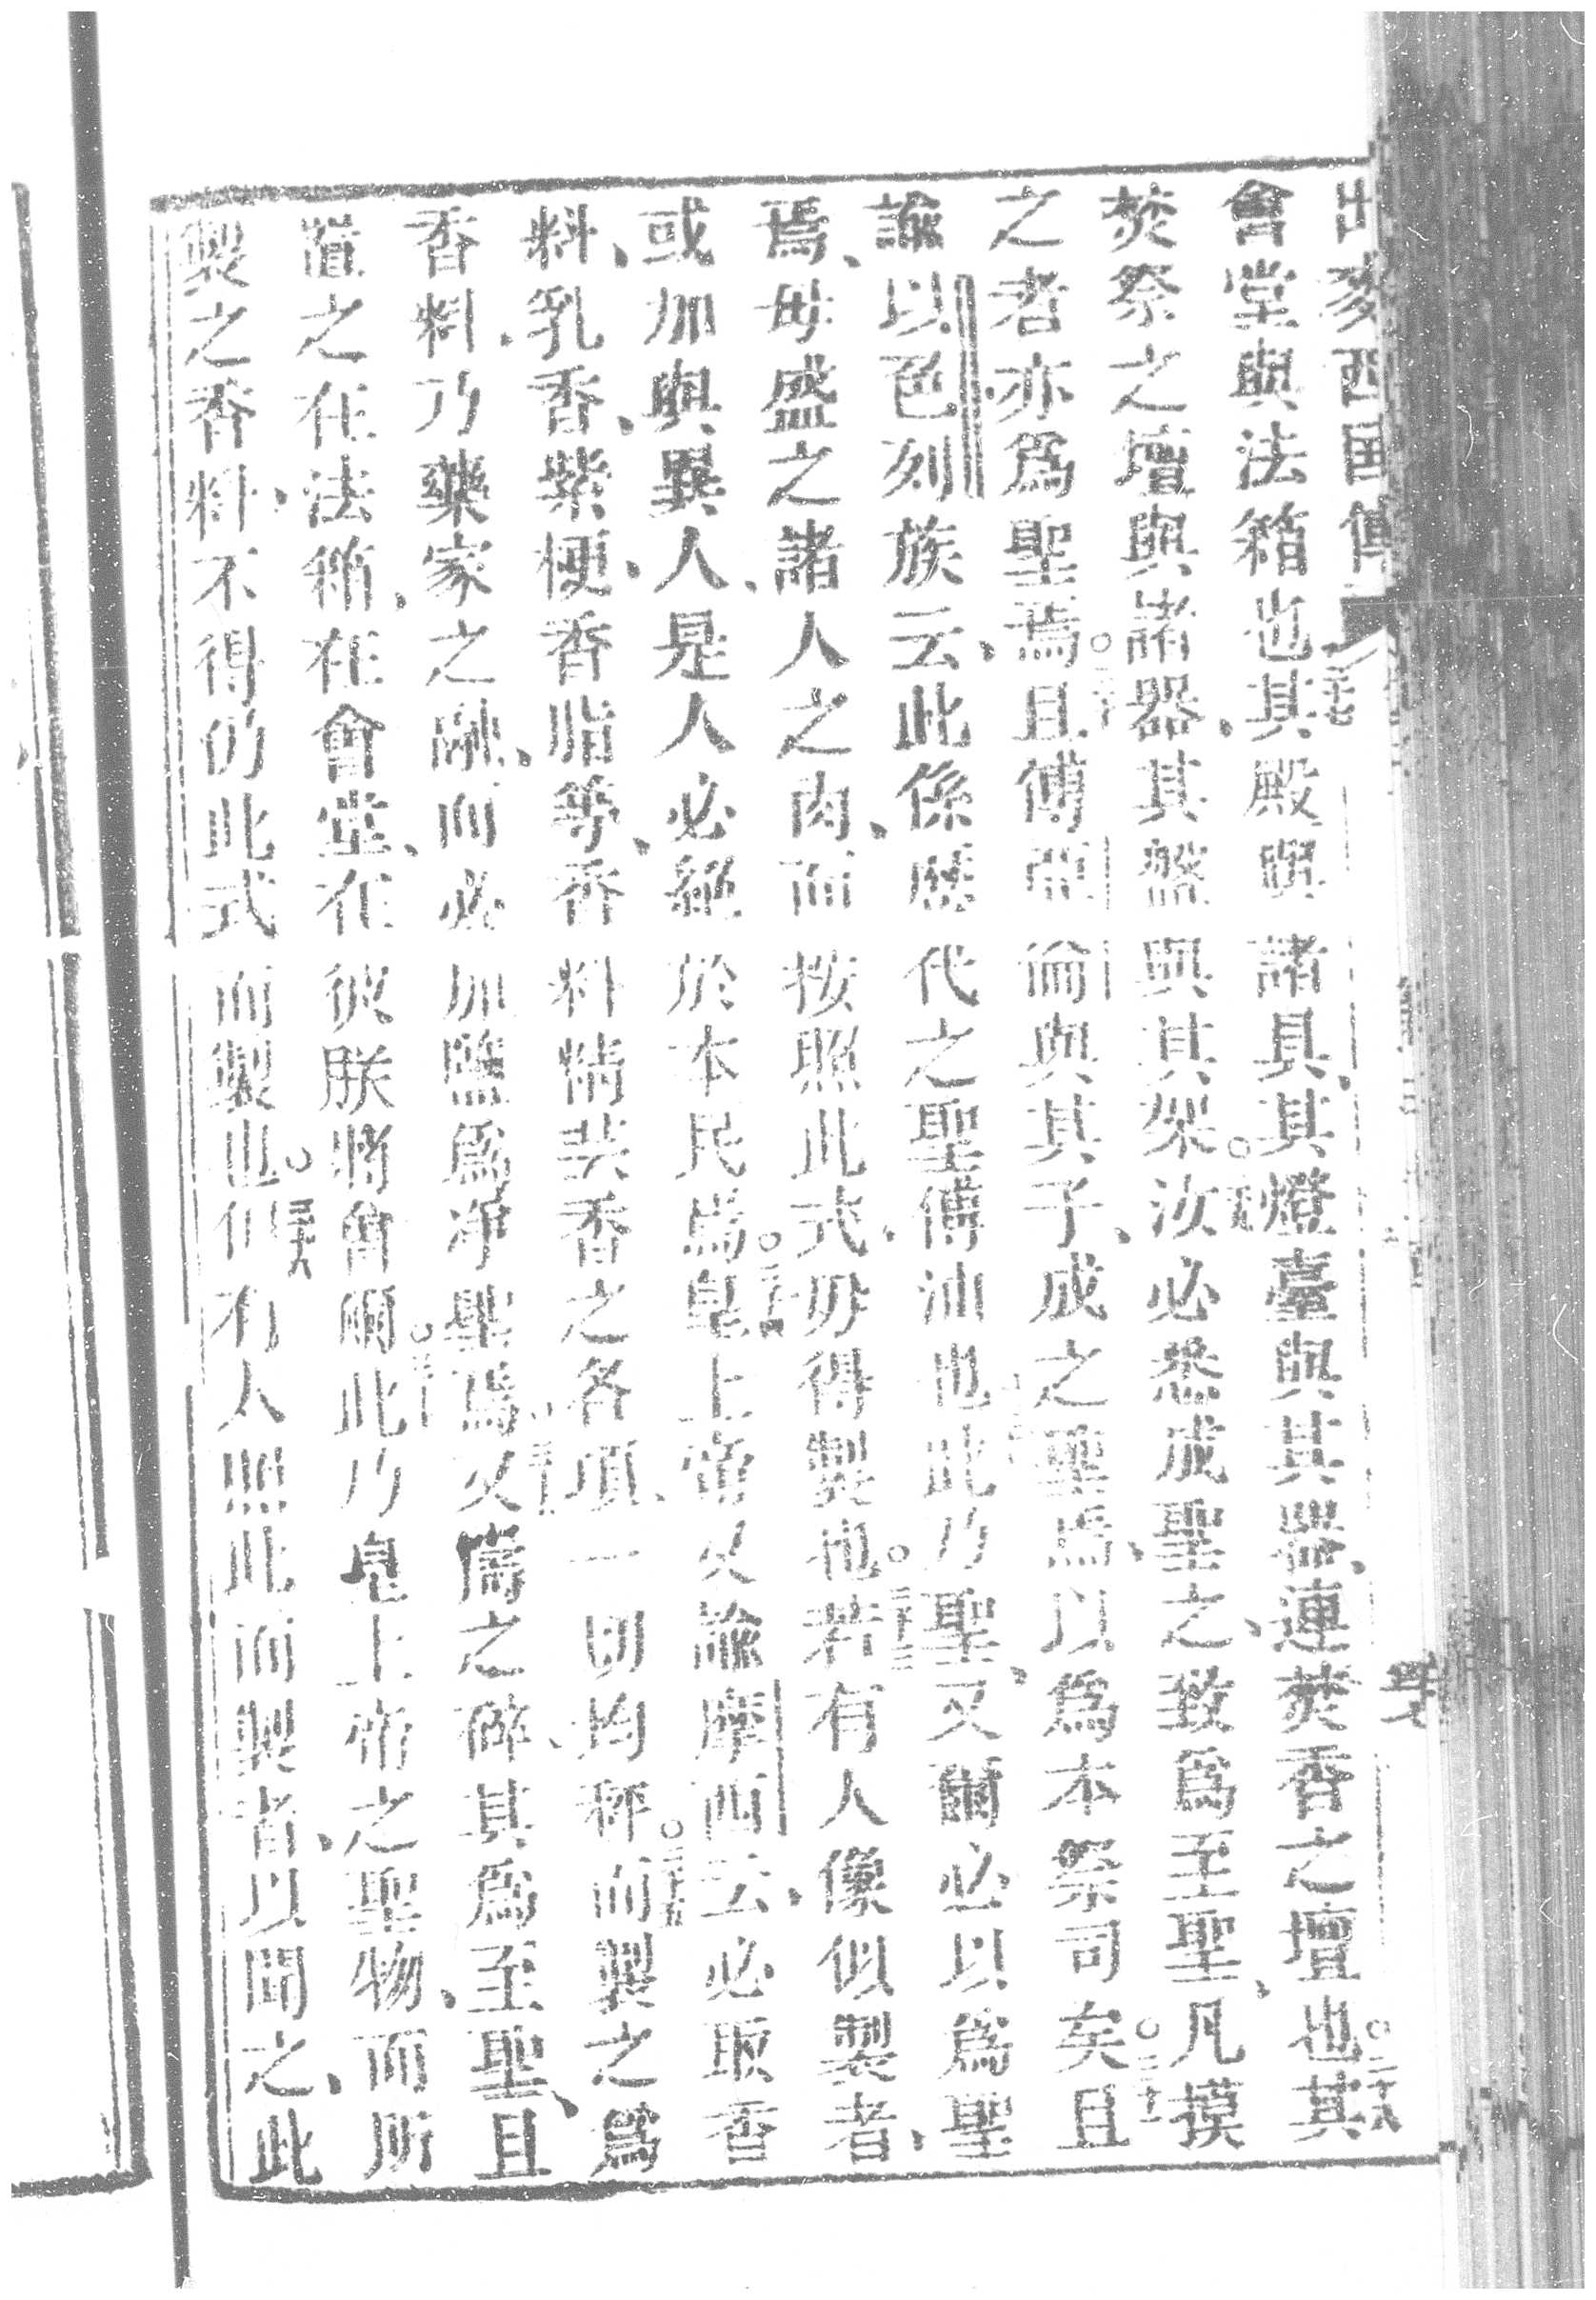 出麥西國傳
會堂與法箱也其殿與諸具、其燈臺與其器、連焚香之壇也○二十八其
焚祭之壇與諸器、其盤與其架○二十九汝必悉成聖之、致爲至聖、凡摸
之者亦爲聖焉○三十且傅亞倫與其子、成之聖焉、以爲本祭司矣○三十一且
諭以色列族云、此係歷代之聖傅油也○三十二此乃聖、又爾必以爲聖
焉、毋盛之諸人之肉、而按照此式、毋得製也○三十三若有人像似製者、
或加與異人、是人必絕於本民焉○三十四皇上帝又諭摩西云、必取香
料、乳香、紫梗、香脂等、香料情共香之各項、一切均秤○三十五而製之爲
香料、乃藥家之融、而必加鹽爲凈聖焉○三十六又舂之碎、其爲至聖、且
置之在法箱、在會堂、在彼朕將會爾○三十七此乃皇上帝之聖物、而所
製之香料、不得仍此式而製也○三十八但有人照此而製者、以聞之、此